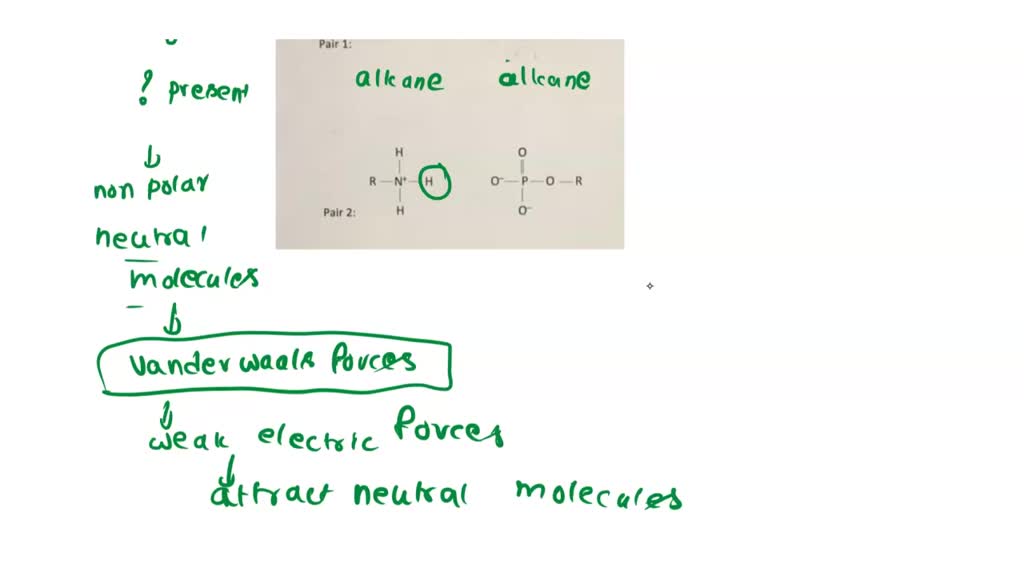 Pair 1:
alkane alkane
? present
non polar
neutral
molecules
H
R — N⁺ — H
H
O
O⁻ — P — O — R
O⁻
Pair 2:
Vanderwaals forces
weak electric forces
attract neutral molecules